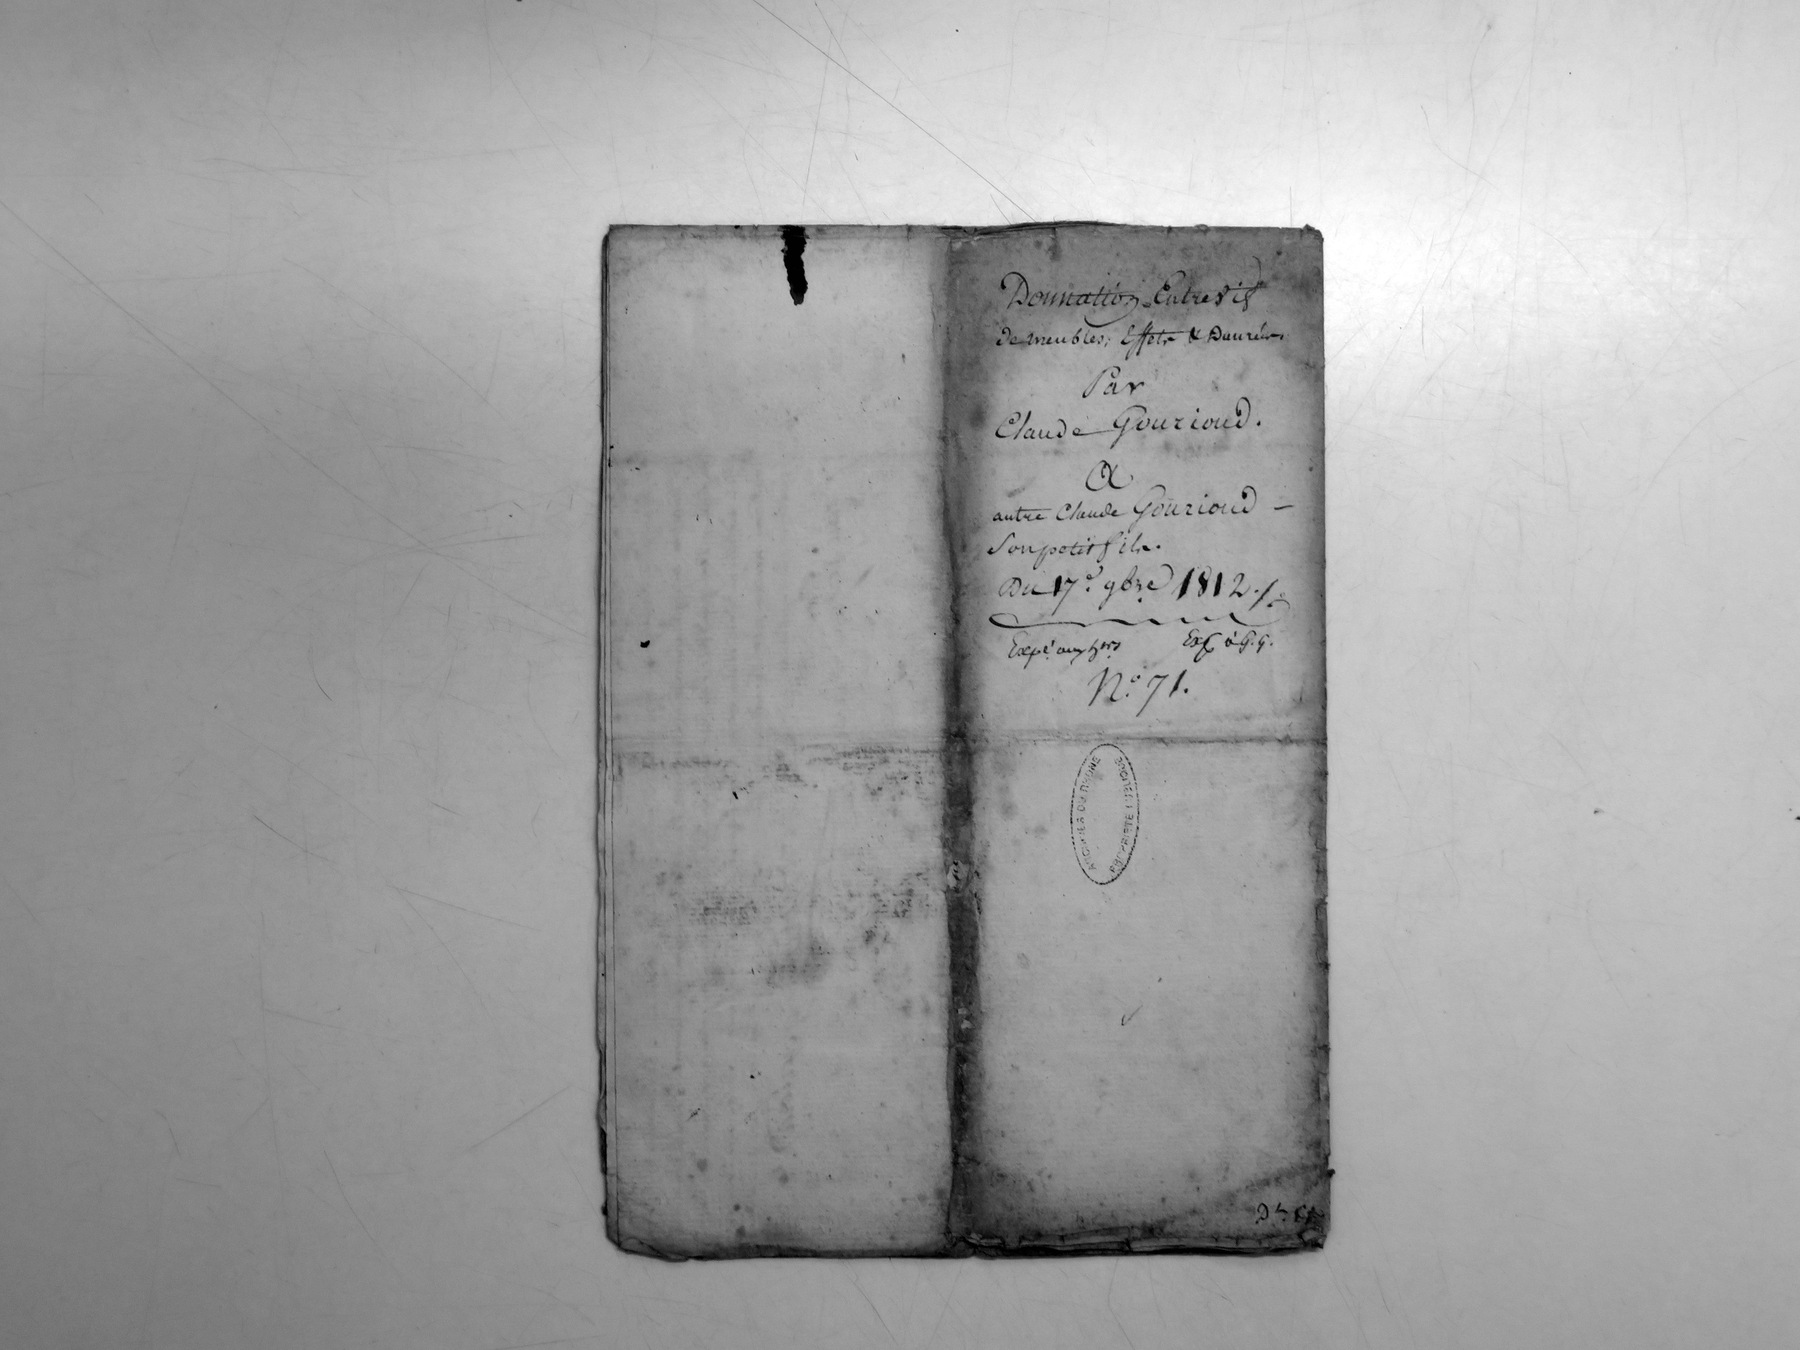 Donnation Entrevif
de meubles, Effets & Danrées.
Par
Claude Gourioud.
A
autre Claude Gourioud -
son petit fils.
Du 17.e 9bre 1812./.
Expé. aux
Exp à G. G.
N.o 71.
ARCHIVES DU RHONE
PROPRIÉTÉ PUBLIQUE